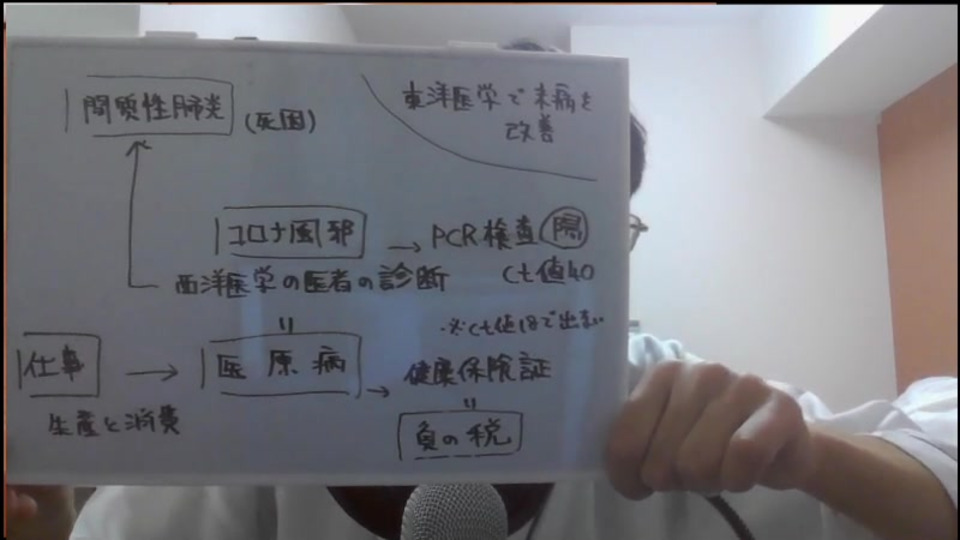 間質性肺炎
(死因)
東洋医学で未病を
改善
コロナ風邪
→ PCR検査 陽
Ct値40
西洋医学の医者の診断
※Ct値18で出ない
仕事 → 医原病 → 健康保険証
生産と消費
負の税